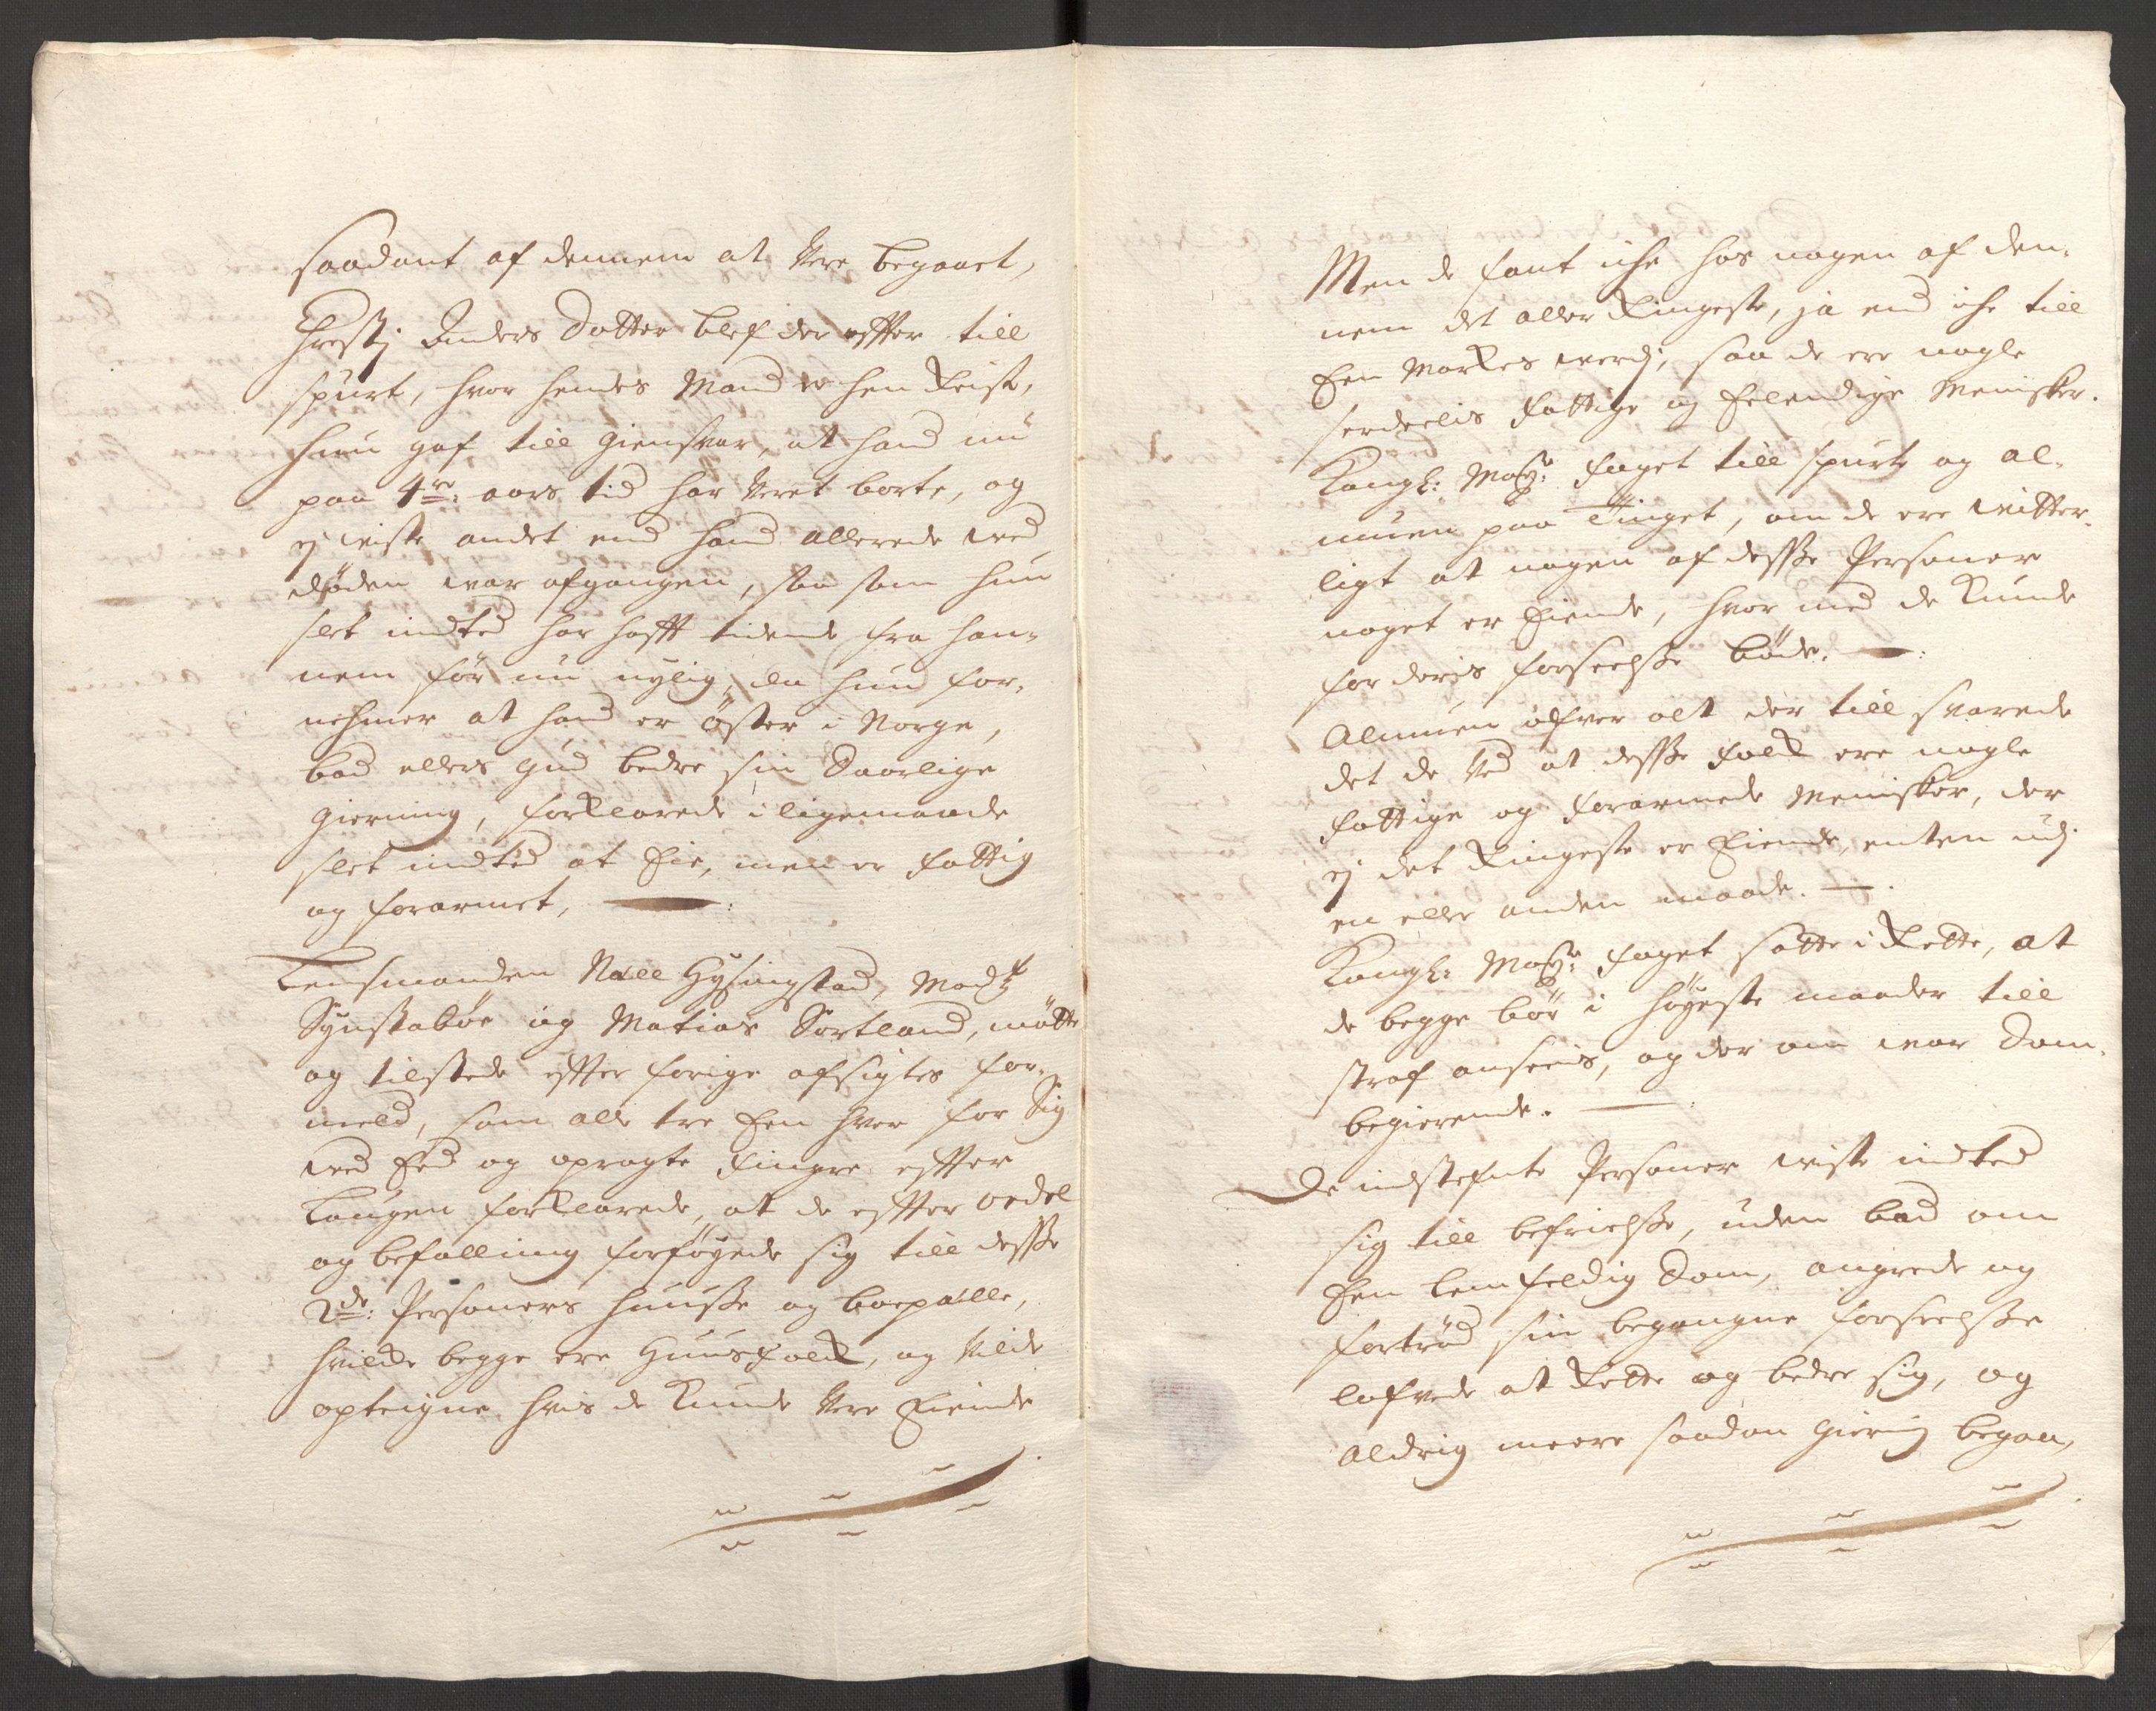 saadant af dennem at Vere begaaet,
Chresti Anders Datter blef der effter till
spurt, hvor hendes Mand er hen Reist,
hun gaf till giensvar, at hand nu
paa 4re: aars tid har Veret borte, og
ej viste andet end hand allerede ved
døden var afgangen, saa som hun
slet indted har hafft tidende fra han-
nem før nu nylig, da hun for-
nehmer at hand er øster i Norge,
bad ellers Gud bedre sin Daarlige
gierning, forklarede i ligemaade
slet indted at Eie, men er fattig
og forarmet,
Lensmanden Niell Hysingstad, Madtz
Synstabøe og Matias Sortland, møtte
og tilstede effter forige afsigtes for-
meld, som alle tre Een hver for Sig
ved Eed og opragte fingre effter
Laugen forklarede, at de effter ordel
og befalling forføyede sig till desse
2de: Personers huusse og boepælle,
hvilcke begge ere Huusfolck, og vilde
opteigne hvis de Kunde Vere Eiende
Men de fant iche hos nogen af den-
nem det aller Ringeste, ja end iche till
Een Markes verdj, saa de ere nogle
serdeelis fattige og Elendige Menisker.
Kongl: Maytz: foget till spurte og al-
muen paa Tinget, om de ere vitter-
ligt at nogen af desse Personer
noget er Eiende, hvor med de Kunde
for deris forseelsse bøde.
Almuen ofver alt der till svarede
det de Ved at desse folck ere nogle
fattige og forarmede Menisker, der
ej det Ringeste er Eiende, enten udj
en eller anden maade.
Kongl: Maytz: foget satte i Rette, at
de begge bør i høyeste maader till
straf anseeis, og der om var Dom
begierende.
De indstefnte Personer viste indted
sig till befrielsse, uden bad om
Een lemfeldig Dom, angrede og
fortrød sin begangne forseelsse
lofvede at Rette og bedre sig, og
aldrig meere saadan gierning begaa,